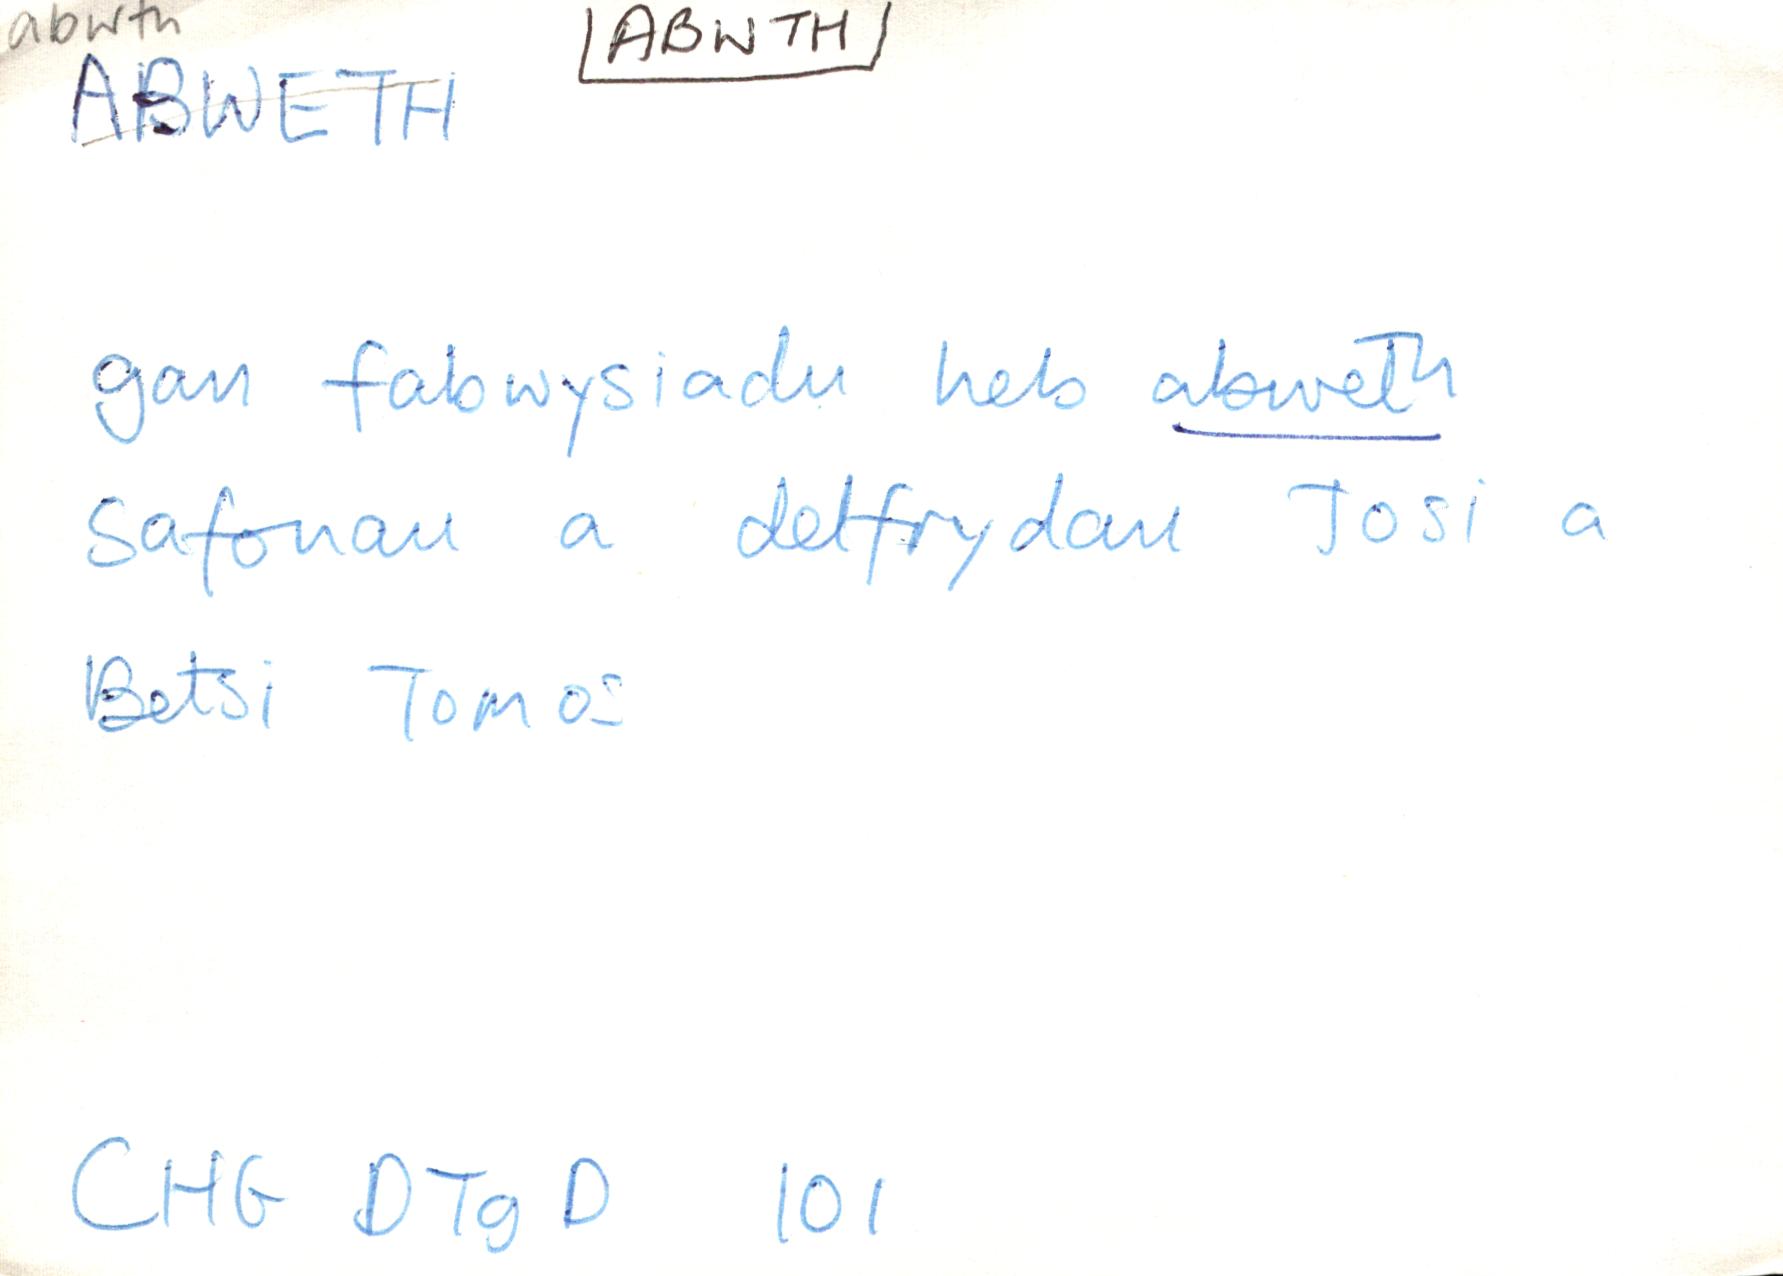 abwth
ABWTH
ABWETH
gan fabwysiadu heb abweth
safonau a delfrydau Josi a
Betsi Tomos
CHG DTgD 101